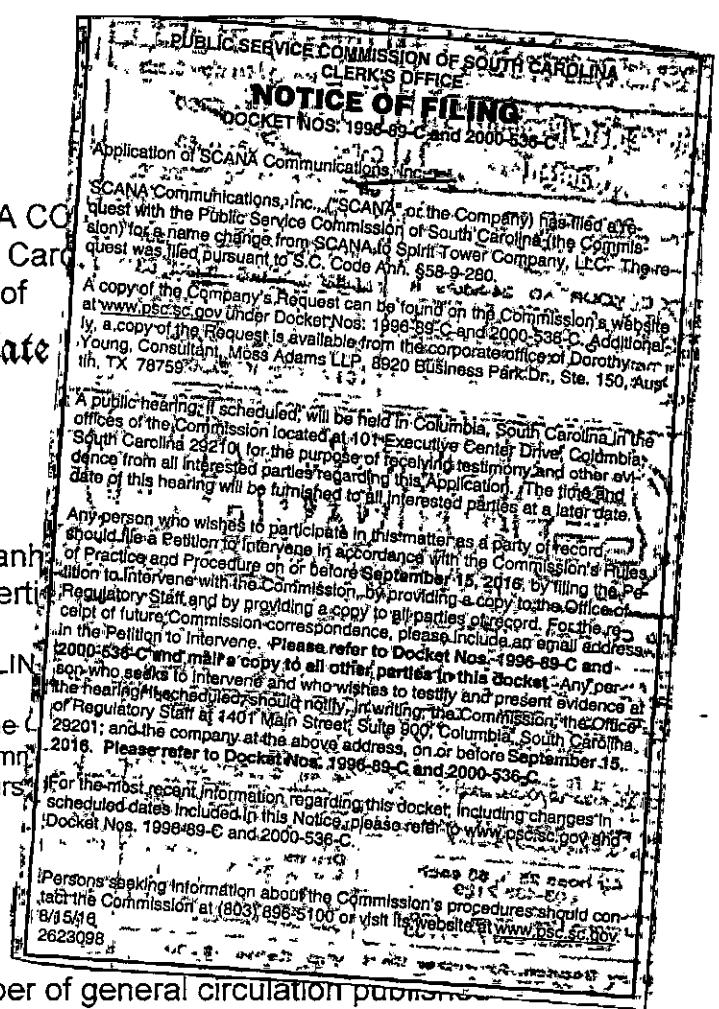 PUBLIC SERVICE COMMISSION OF SOUTH CAROLINA
CLERK'S OFFICE
NOTICE OF FILING
DOCKET NOS. 1996-89-C and 2000-536-C
Application of SCANA Communications, Inc.
SCANA Communications, Inc., ("SCANA" or the Company) has filed a re-
quest with the Public Service Commission of South Carolina (the Commis-
sion) for a name change from SCANA to Spirit Tower Company, LLC. The re-
quest was filed pursuant to S.C. Code Ann. §58-9-280.
A copy of the Company's Request can be found on the Commission's website
at www.psc.sc.gov under Docket Nos. 1996-89-C and 2000-536-C. Additional-
ly, a copy of the Request is available from the corporate office of Dorothy
Young, Consultant, Moss Adams LLP, 8920 Business Park Dr., Ste. 150, Aus-
tin, TX 78759
A public hearing, if scheduled, will be held in Columbia, South Carolina in the
offices of the Commission located at 101 Executive Center Drive, Columbia,
South Carolina 29210, for the purpose of receiving testimony and other evi-
dence from all interested parties regarding this Application. The time and
date of this hearing will be furnished to all interested parties at a later date.
Any person who wishes to participate in this matter as a party of record
should file a Petition to Intervene in accordance with the Commission's Rules
of Practice and Procedure on or before September 15, 2016, by filing the Pe-
tition to Intervene with the Commission, by providing a copy to the Office of
Regulatory Staff and by providing a copy to all parties of record. For the re-
ceipt of future Commission correspondence, please include an email address
in the Petition to Intervene. Please refer to Docket Nos. 1996-89-C and
2000-536-C and mail a copy to all other parties in this docket. Any per-
son who seeks to intervene and who wishes to testify and present evidence at
the hearing, if scheduled, should notify, in writing, the Commission; the Office
of Regulatory Staff at 1401 Main Street, Suite 900, Columbia, South Carolina
29201; and the company at the above address, on or before September 15,
2016. Please refer to Docket Nos. 1996-89-C and 2000-536-C.
For the most recent information regarding this docket, including changes in
scheduled dates included in this Notice, please refer to www.psc.sc.gov and
Docket Nos. 1996-89-C and 2000-536-C.
Persons seeking information about the Commission's procedures should con-
tact the Commission at (803) 896-5100 or visit its website at www.psc.sc.gov.
8/15/16
2623098
A CO
Caro
of
ate
anh
erti
LIN
e C
omm
urs
per of general circulation published